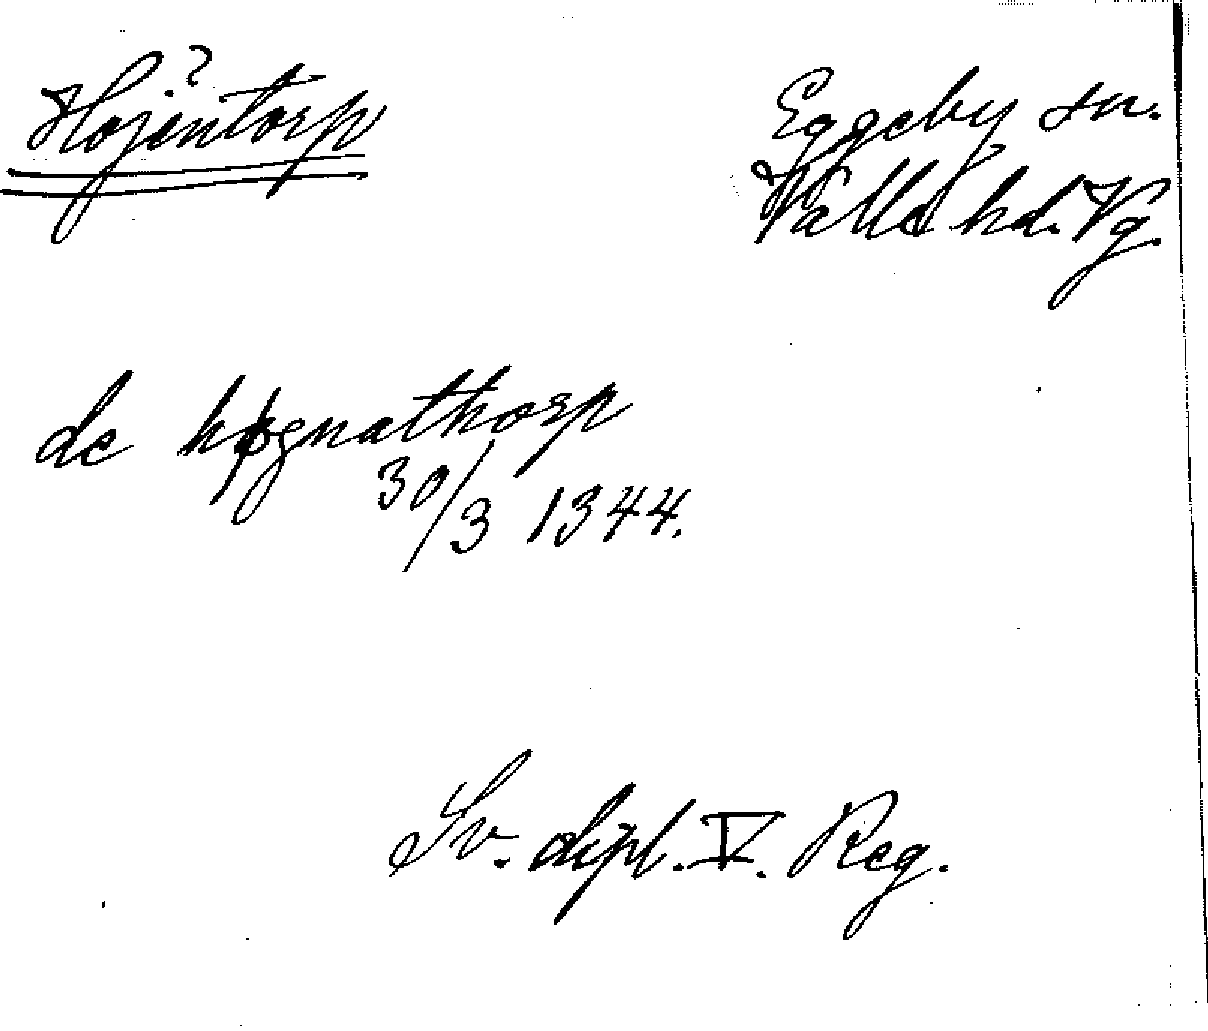 Höjentorp ?
Eggeby sn.
Valle hd. Vg.
de høgnathorp
30/3 1344.
Sv. dipl. V. Reg.